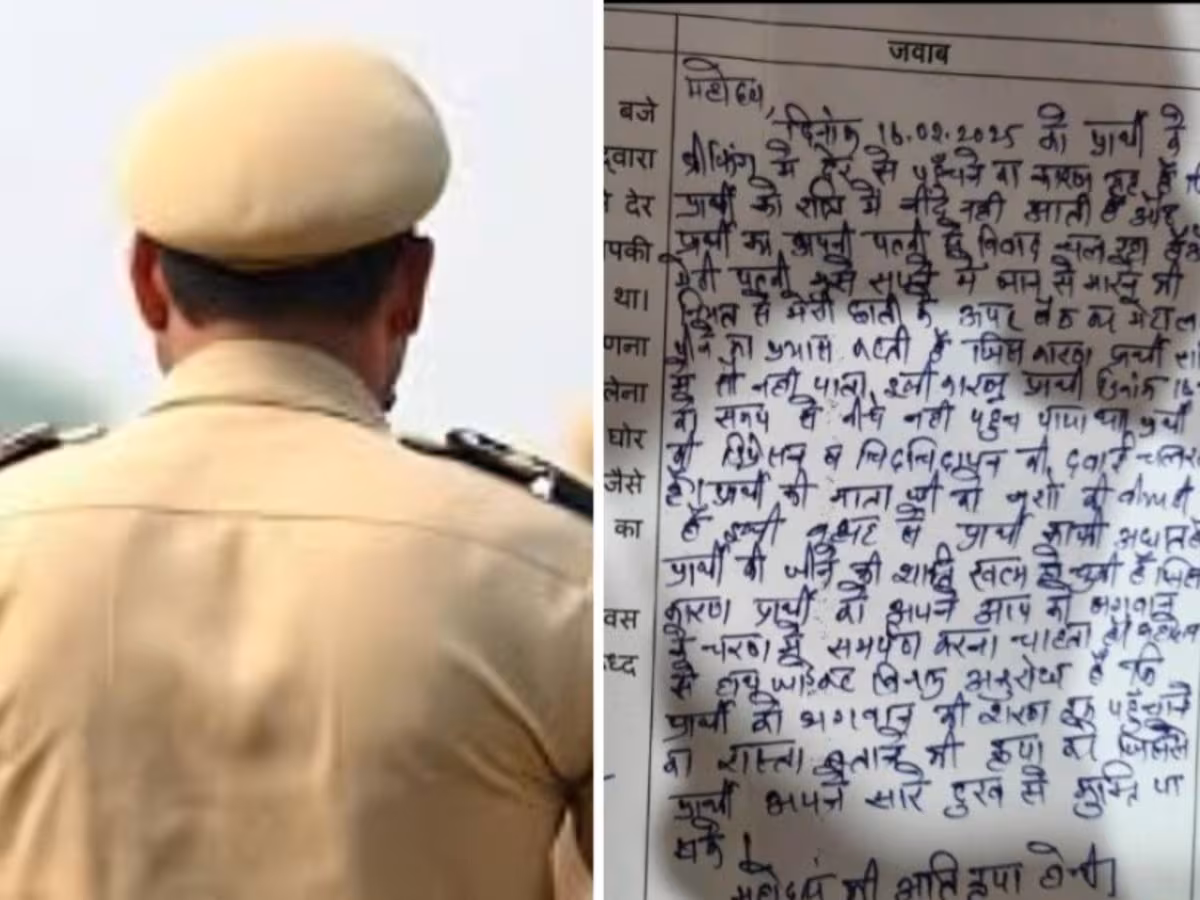 जवाब
बजे
दवारा
देर
पकी
था।
णना
लेना
घोर
जैसे
का
वस
ध्द
महोदय,
दिनांक 16.02.2025 को प्रार्थी के
ब्रीफिंग में देर से पहुँचने का कारण यह है कि
प्रार्थी को रात्रि में नींद नही आती है और
प्रार्थी का अपनी पत्नी से विवाद चल रहा है
मेरी पत्नी मुझे सपने में जान से मारने की
नियत से मेरी छाती के ऊपर बैठ कर मेरा
पीने का प्रयास करती है जिस कारण प्रार्थी
में सो नही पाता, इसी कारण प्रार्थी दिनांक 16
को समय से नीचे नही पहुच पाया था प्रार्थी
की डिप्रेसन व चिडचिडापन की दवाई
है। प्रार्थी की माता जी को नशो की बीमारी
है प्रार्थी काफी
प्रार्थी की जीने की शक्ति खत्म हो चुकी है जिस
कारण प्रार्थी को अपने आप को भगवान
के चरणो में समर्पण करना चाहता
से हाथ जोडकर विनम्र अनुरोध है कि
प्रार्थी को भगवान की शरण तक पहुँचाने
का रास्ता बताने की कृपा करे जिससे
प्रार्थी अपने सारे दुख से मुक्ति पा
सके।
महोदय की अति कृपा होगी